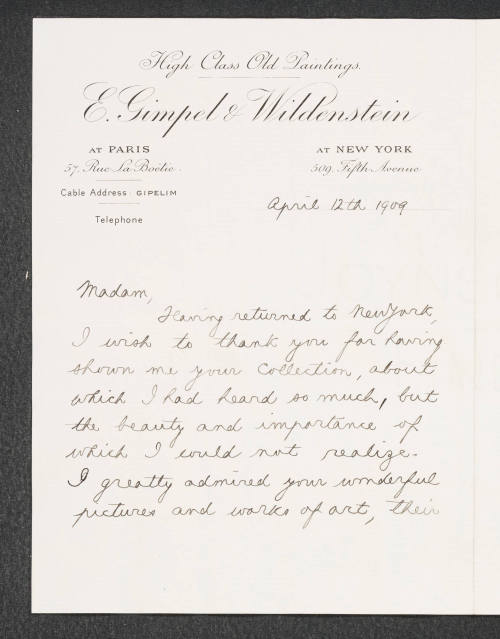 High Class Old Paintings.
E. Gimpel & Wildenstein
AT PARIS
57, Rue La Boëtie.
AT NEW YORK
509, Fifth Avenue
Cable Address: GIPELIM
Telephone
April 12th 1909
Madam,
Having returned to New York,
I wish to thank you for having
shown me your collection, about
which I had heard so much, but
the beauty and importance of
which I could not realize.
I greatly admired your wonderful
pictures and works of art, their